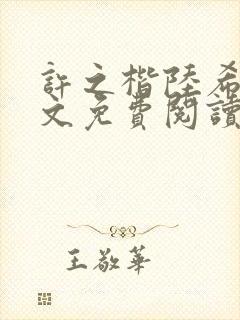 許之楷陸希
文免費閱讀
王敬華